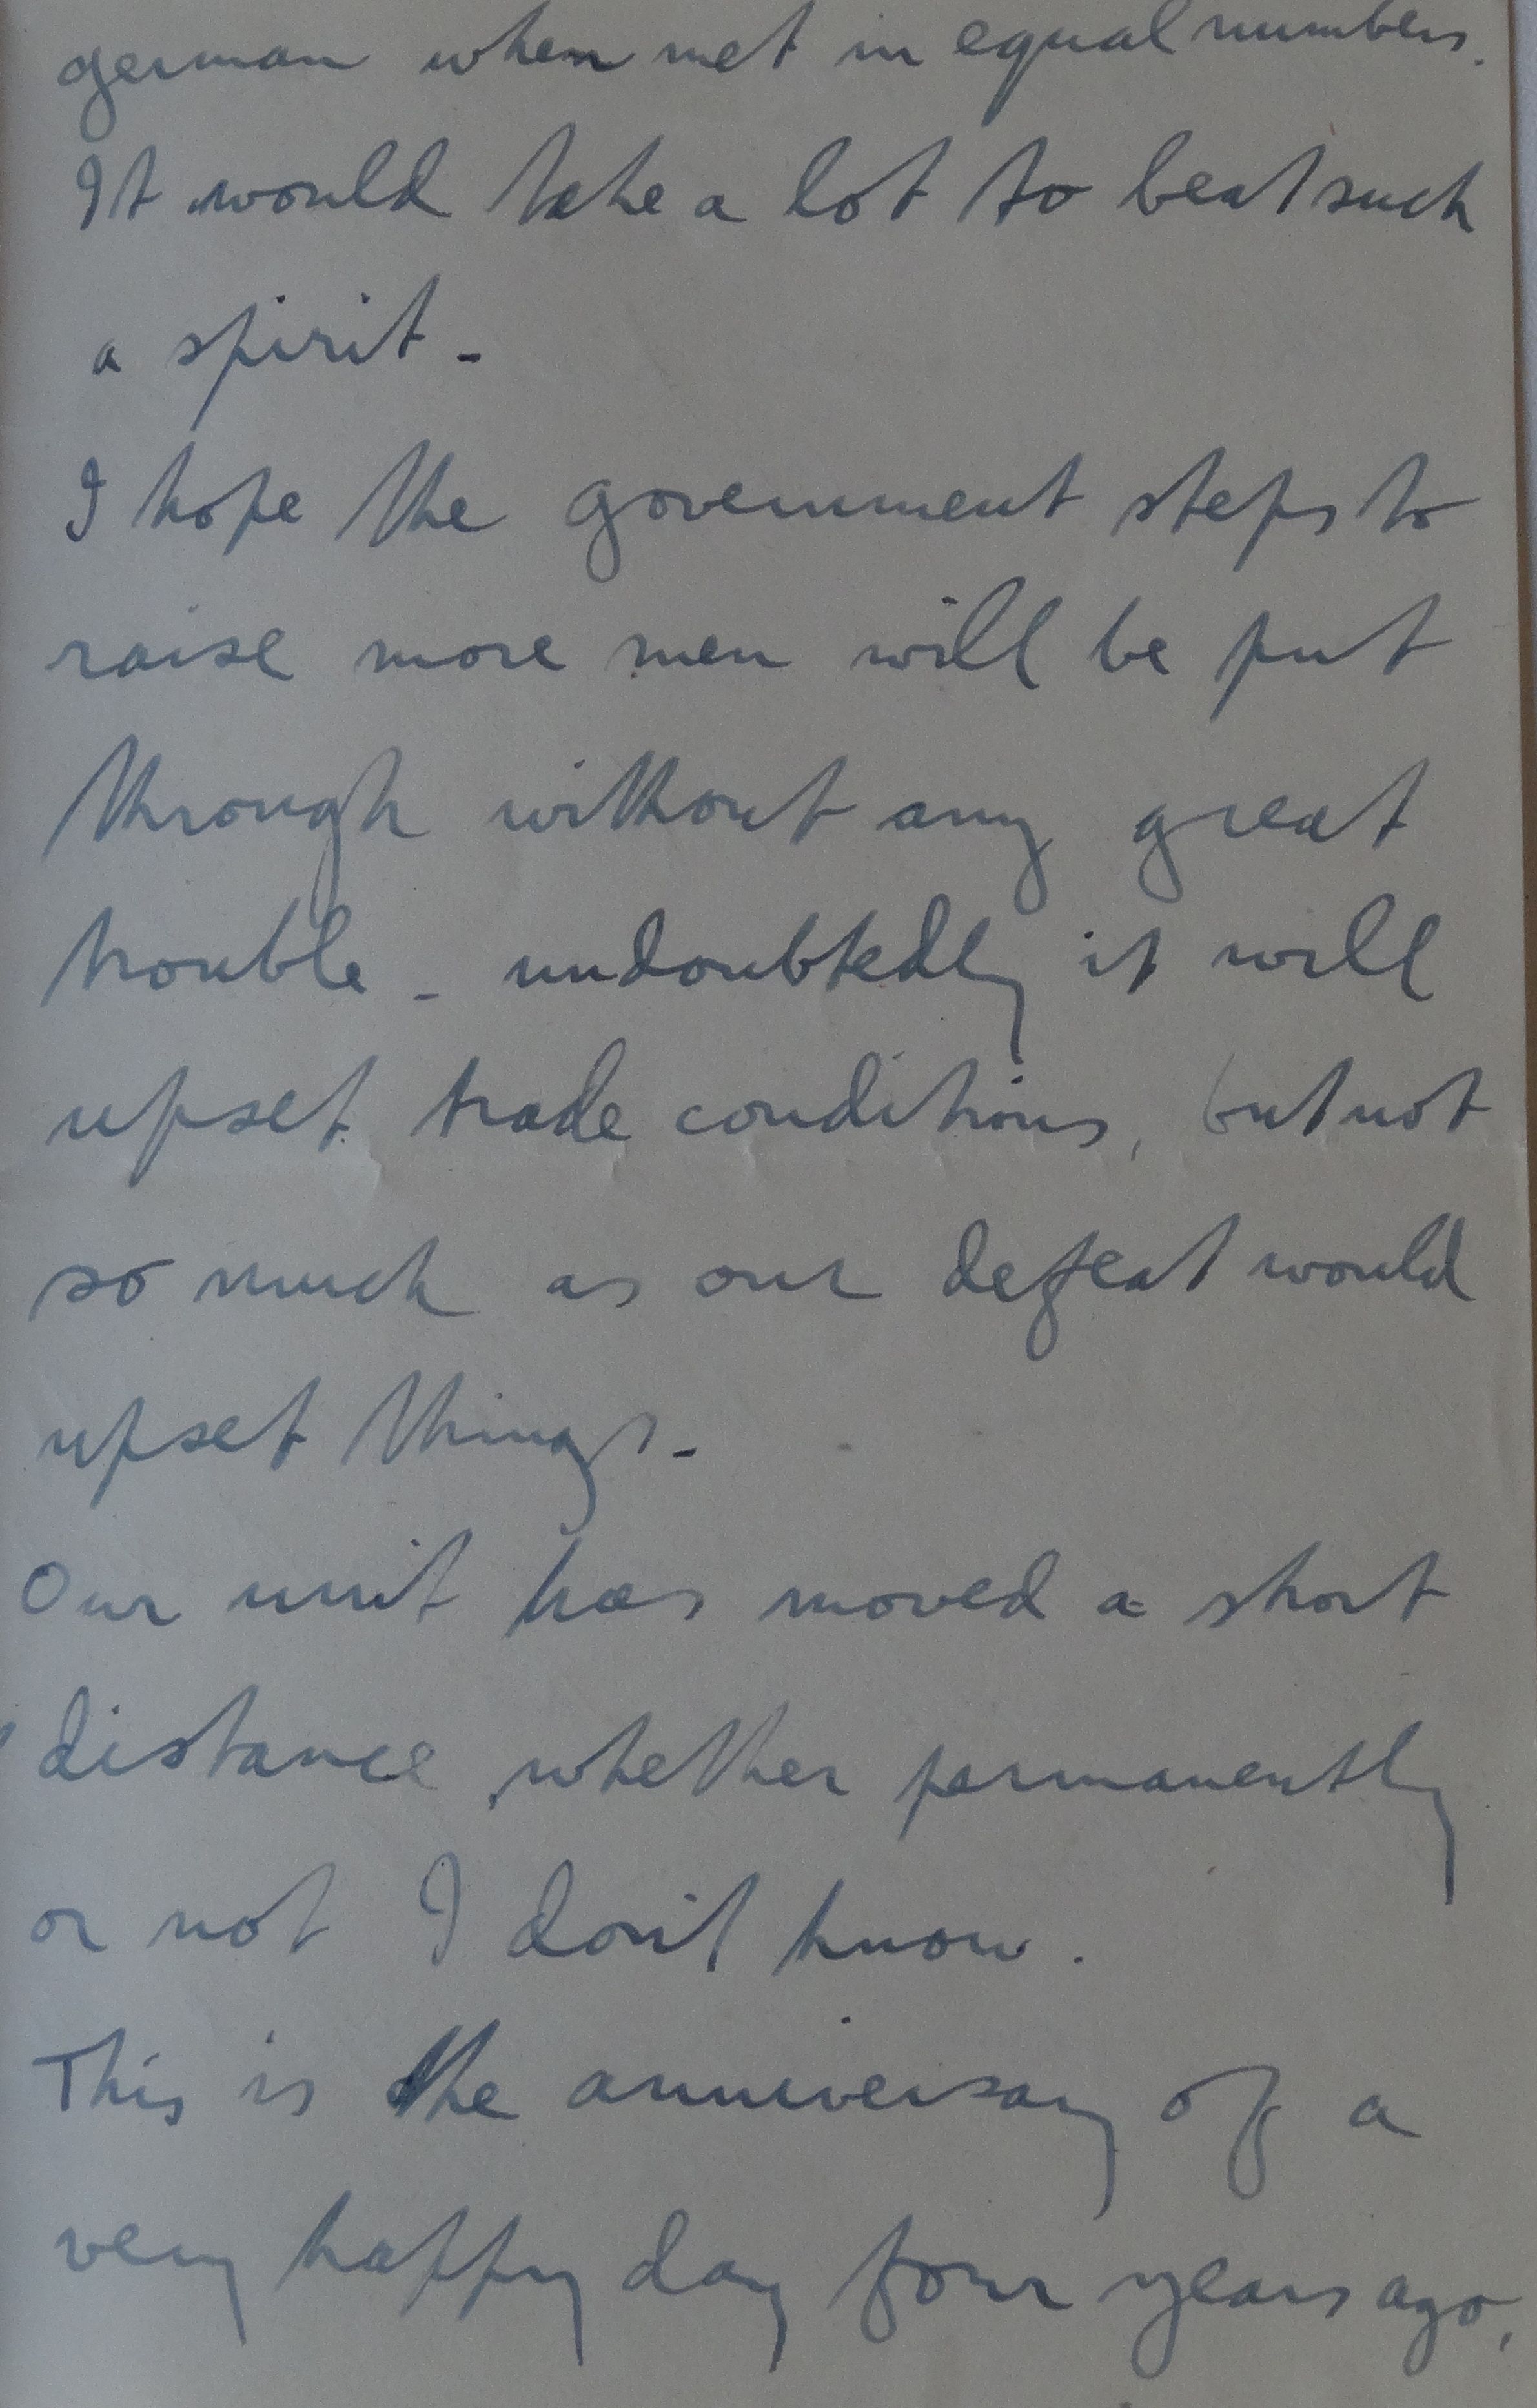 german when met in equal numbers.
It would take a lot to beat such
a spirit -
I hope the government steps to
raise more men will be put
through without any great
trouble - undoubtedly it will
upset trade conditions, but not
so much as our defeat would
upset things -
Our unit has moved a short
distance, whether permanently
or not I don't know.
This is the anniversary of a
very happy day four years ago,